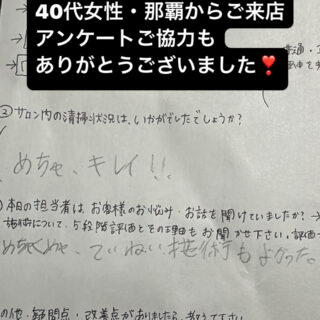 40代女性・那覇からご来店
アンケートご協力も
ありがとうございました❣️
②サロン内の清掃状況は、いかがでしたでしょうか?
めちゃ、キレイ!!
本日の担当者は、お客様のお悩み・お話を聞けていましたか?→
施術について、5段階評価とその理由もお聞かせ下さい。評価→
めちゃくちゃ、ていねい 技術もよかった。
の他・疑問点・改善点がありましたら、教えて下さい